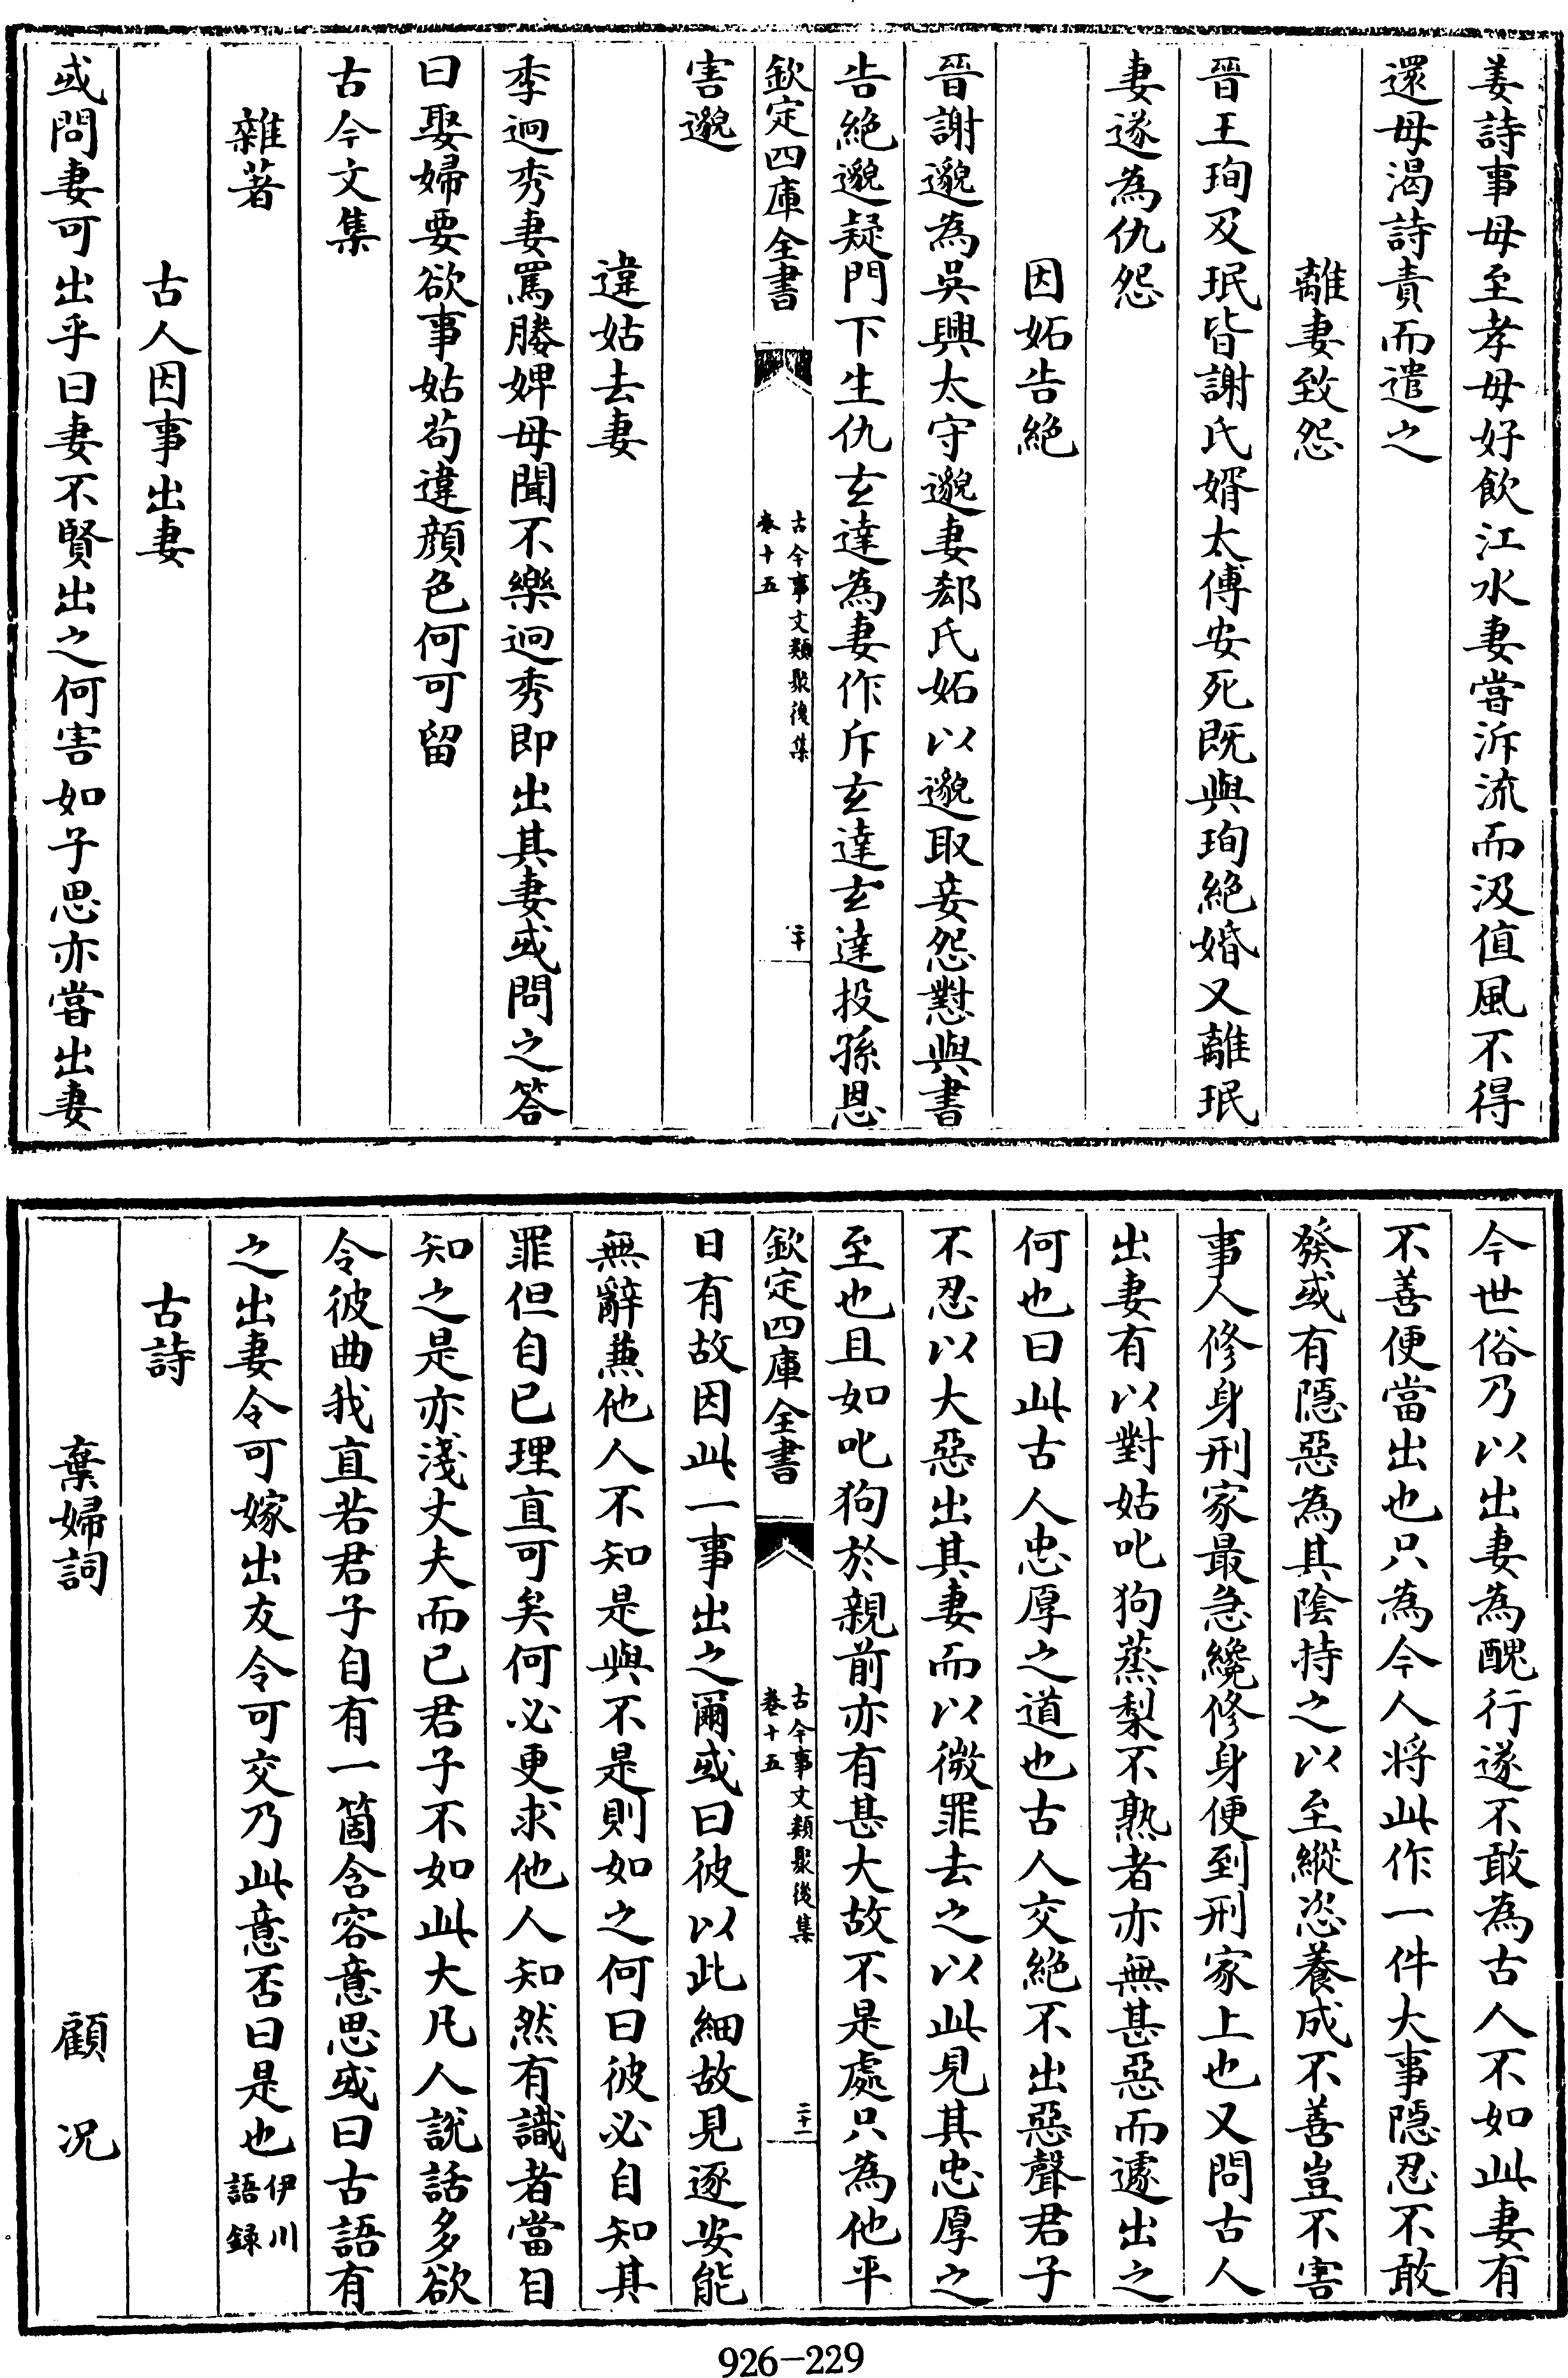 姜詩事母至孝母好飲江水妻嘗泝流而汲值風不得
還母渴詩責而遣之
離妻致怨
晉王珣及珉皆謝氏婿太傅安死既與珣絶婚又離珉
妻遂為仇怨
因妬告絶
晉謝邈為吳興太守邈妻郄氏妬以邈取妾怨懟與書
告絶邈疑門下生仇玄達為妻作斥玄達玄達投孫恩
欽定四庫全書
古今事文類聚後集
卷十五
二十
害邈
違姑去妻
李迥秀妻罵媵婢母聞不樂迥秀即出其妻或問之答
曰娶婦要欲事姑苟違顔色何可留
古今文集
雜著
古人因事出妻
或問妻可出乎曰妻不賢出之何害如子思亦嘗出妻
今世俗乃以出妻為醜行遂不敢為古人不如此妻有
不善便當出也只為今人將此作一件大事隱忍不敢
發或有隱惡為其陰持之以至縱恣養成不善豈不害
事人修身刑家最急纔修身便到刑家上也又問古人
出妻有以對姑叱狗蒸梨不熟者亦無甚惡而遽出之
何也曰此古人忠厚之道也古人交絶不出惡聲君子
不忍以大惡出其妻而以微罪去之以此見其忠厚之
至也且如叱狗於親前亦有甚大故不是處只為他平
欽定四庫全書
古今事文類聚後集
卷十五
二十一
日有故因此一事出之爾或曰彼以此細故見逐安能
無辭兼他人不知是與不是則如之何曰彼必自知其
罪但自已理直可矣何必更求他人知然有識者當自
知之是亦淺丈夫而已君子不如此大凡人說話多欲
令彼曲我直若君子自有一箇含容意思或曰古語有
之出妻令可嫁出友令可交乃此意否曰是也伊川語録
古詩
棄婦詞 顧况
926-229